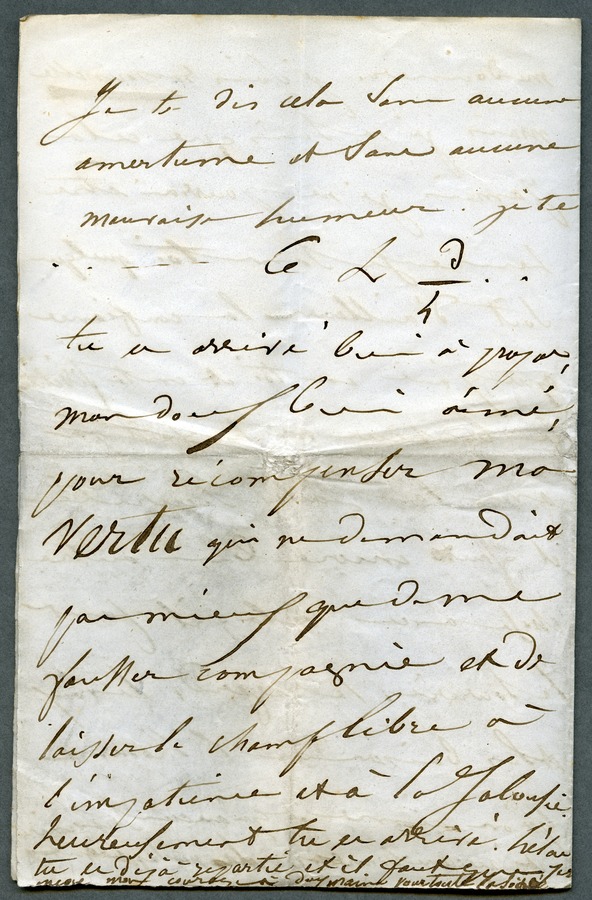 Je te dis cela sans aucune
amertume et sans aucune
mauvaise humeur. je te
6 h 3/4
tu es arrivé bien à propos,
mon doux bien aimé,
pour récompenser ma
vertu qui ne demandait
pas mieux que de me
fausser compagnie et de
laisser le champ libre à
l'impatience et à la jalousie.
heureusement tu es arrivé. hélas
tu es déjà reparti et il faut
mon courage à deux mains pour toute la soirée